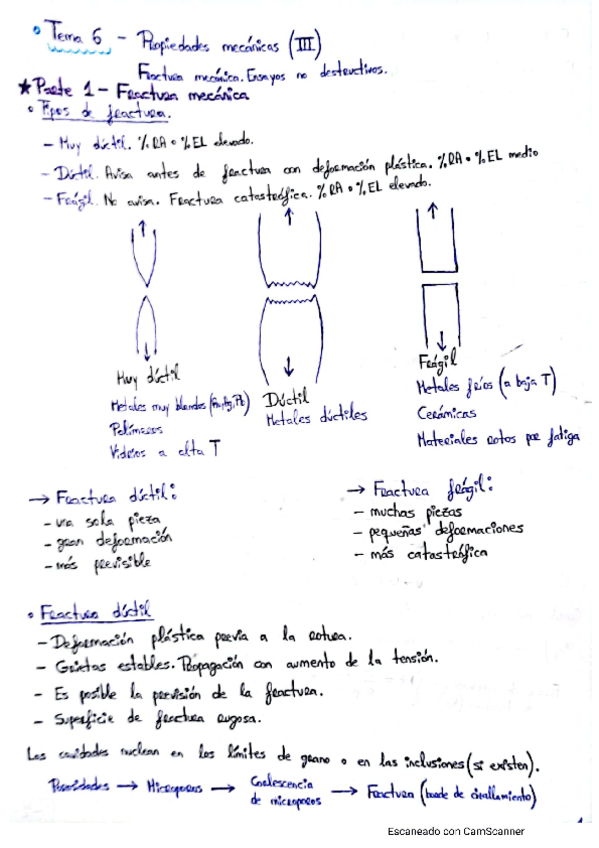 • Tema 6 - Propiedades mecánicas (III)
Fractura mecánica. Ensayos no destructivos.
★ Parte 1 - Fractura mecánica
• Tipos de fractura.
- Muy dúctil. % RA o % EL elevado.
- Dúctil. Avisa antes de fractura con deformación plástica. % RA o % EL medio
- Frágil. No avisa. Fractura catastrófica. % RA o % EL elevado.
Muy dúctil
Metales muy blandos
Polímeros
Vidrios a alta T
Dúctil
Metales dúctiles
Frágil
Metales fríos (a baja T)
Cerámicas
Materiales rotos por fatiga
→ Fractura dúctil:
- una sola pieza
- gran deformación
- más previsible
→ Fractura frágil:
- muchas piezas
- pequeñas deformaciones
- más catastrófica
• Fractura dúctil
- Deformación plástica previa a la rotura.
- Grietas estables. Propagación con aumento de la tensión.
- Es posible la previsión de la fractura.
- Superficie de fractura rugosa.
Las cavidades nuclean en los límites de grano o en las inclusiones (si existen).
Porosidades → Microporos → Coalescencia de microporos → Fractura (borde de cizallamiento)
Escaneado con CamScanner